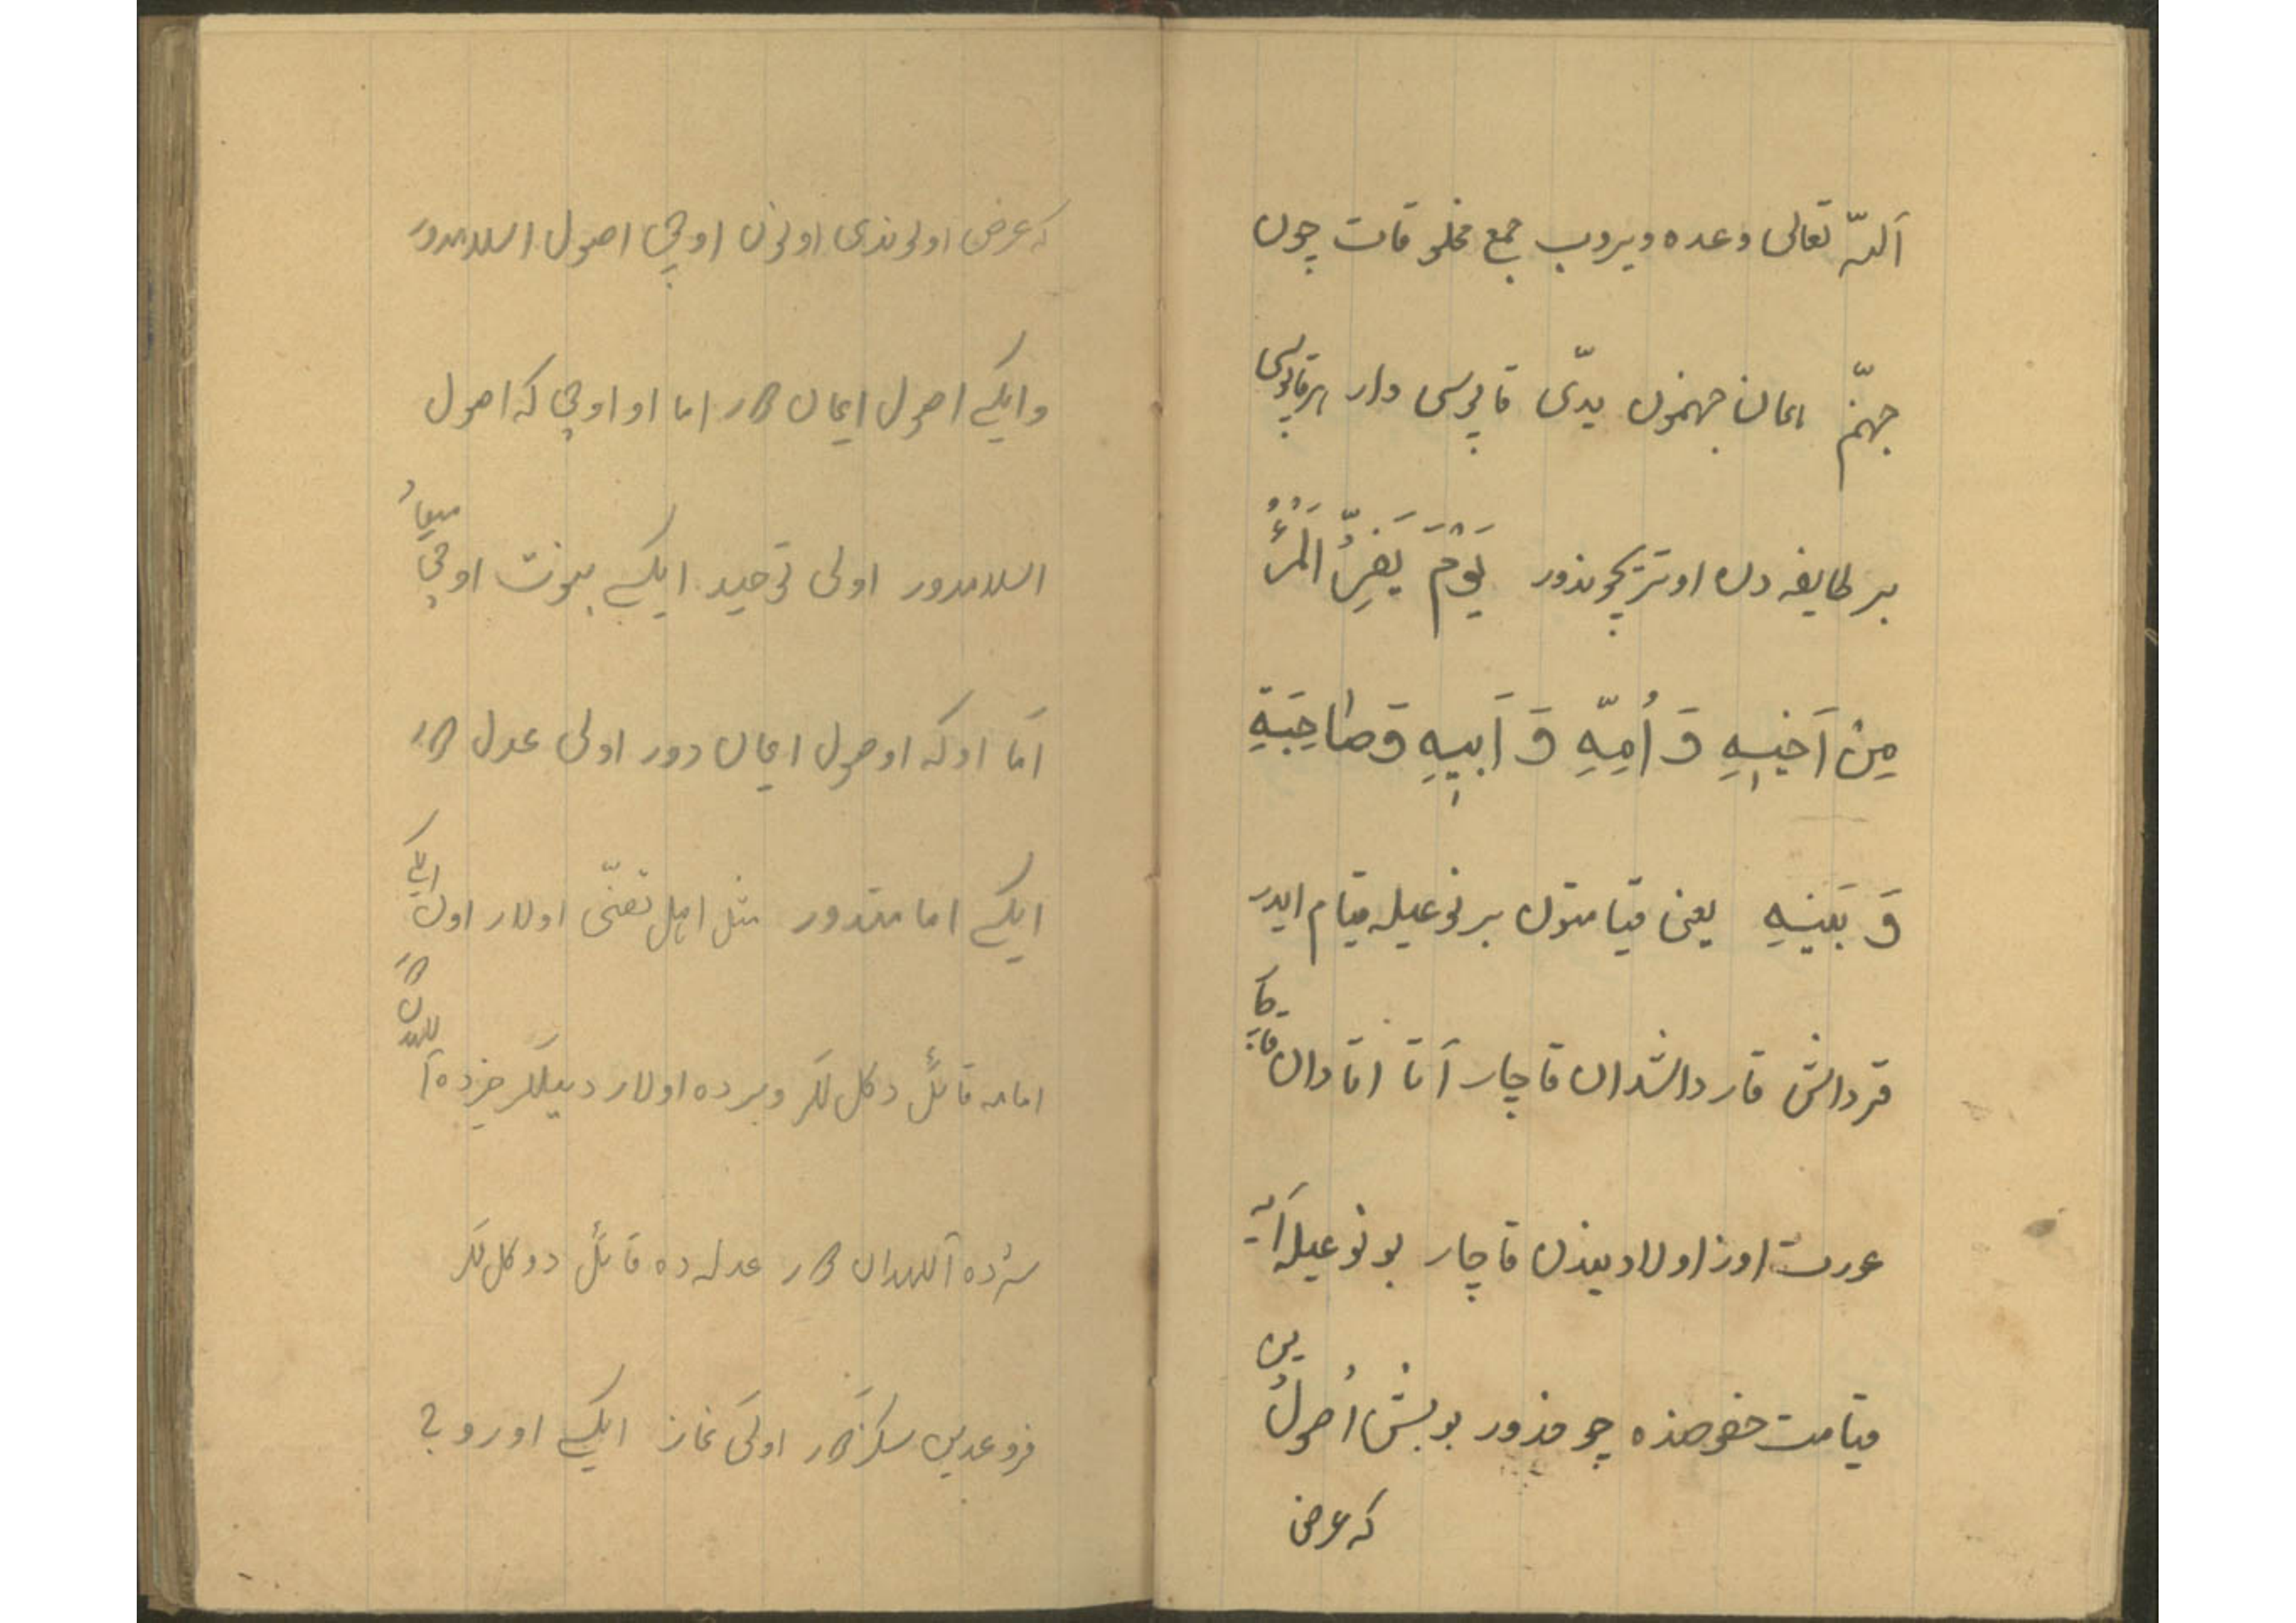 اَللّه تعالی وعده ویروب جمع مخلوقات چون
جهنّم امان جهنمون یدّی قاپوسی وار هر قاپوسی
بر طایفه دن اوتریچوندور یَوْمَ یَفِرُّ الْمَرْءُ
مِنْ اَخیٖهِ وَ اُمِّهِ وَ اَبیٖهِ وَ صاحِبَةِ
وَ بَنیٖهِ یعنی قیامتون بر نوعیله قیام ایدر
قرداش قارداشدان قاچار آتا اتادان
عورت اوز اولادیندن قاچار بو نوعیله
قیامت خصوصنده چو مذور بو بش اُصولُ
دین
که عرض
که عرض اولوندی اونون اوچی اصول اسلامدور
وایکی اصول ایمان در اما او اوچی که اصول
اسلامدور اولی توحید ایکیسی نبوت اوچی
میعاُد
اَما او که اوصول ایمان دور اولی عدل در
ایکی امامتدور مثل اهل تسنّی اولار اول
ایکی
امامه قائل دکللر وبرده اولار دییللر خیرده
شرده آللهدان در عدله ده قائل دوکللر
فروعدین سکزدر اولکی نماز ایکیسی اوروج